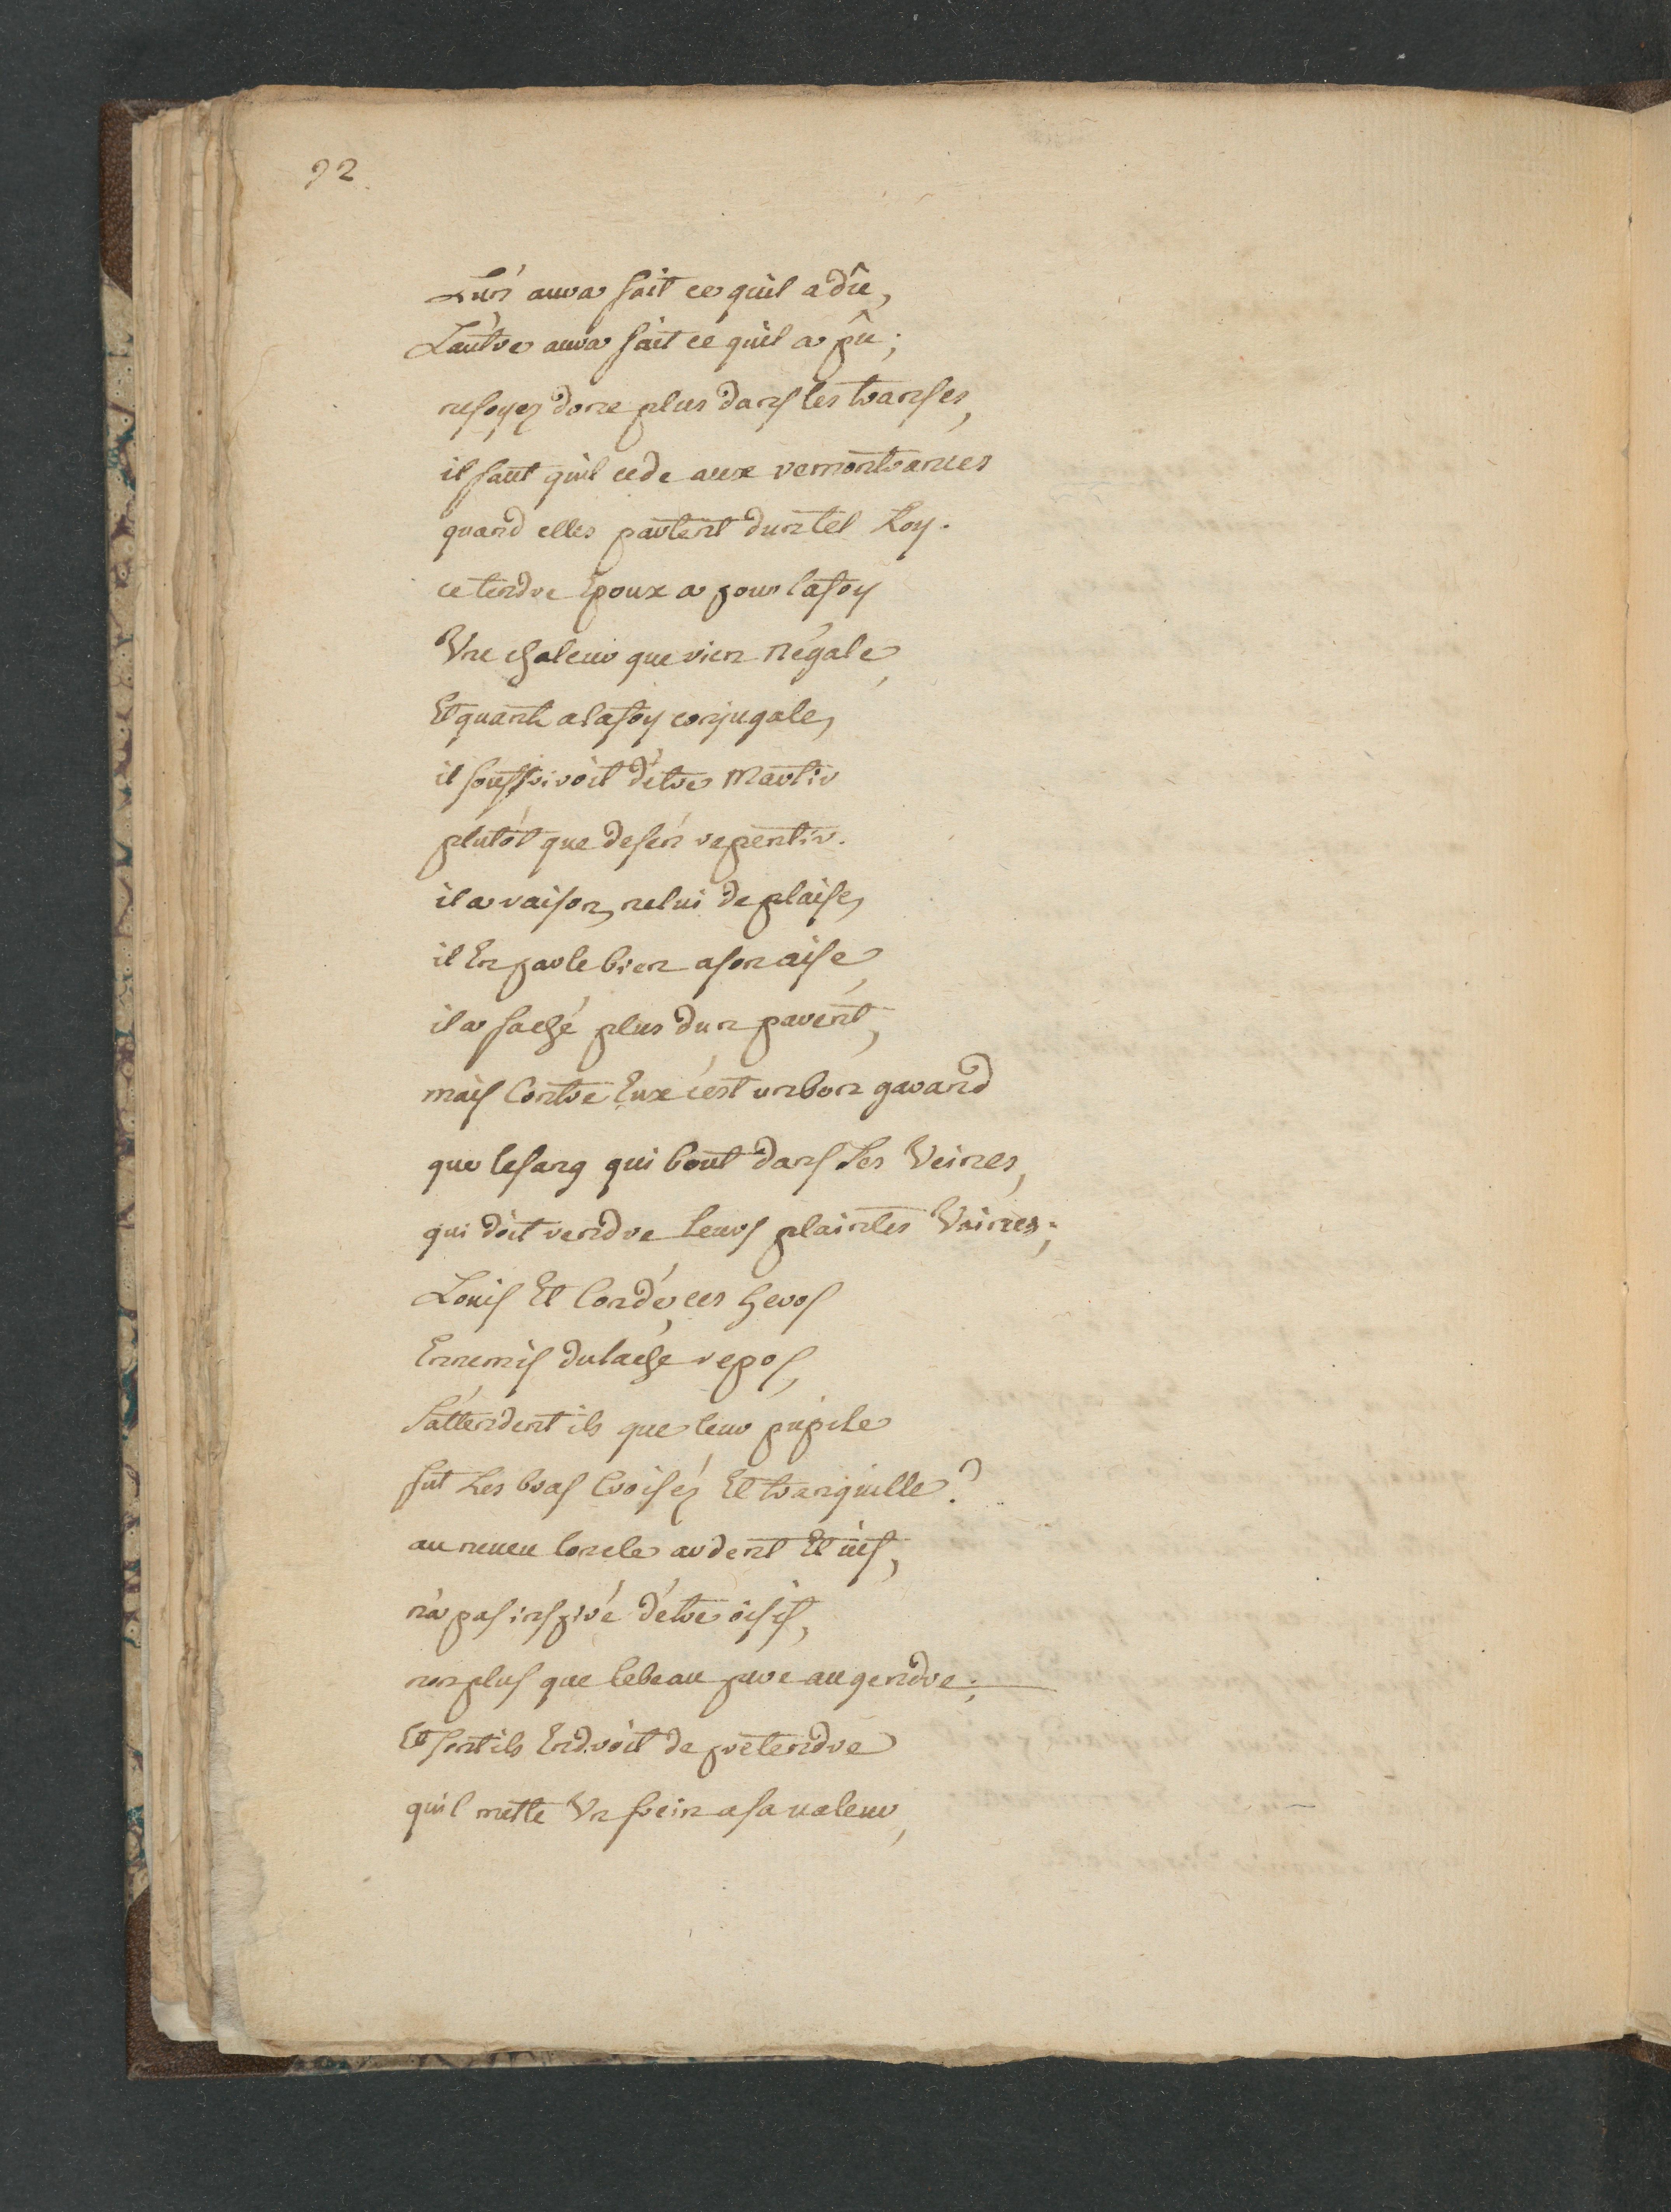 92
Lun' aura fait ce quil a dû,
Lautre aura fait ce quil a pû;
ne soyez donc plus dans les transes,
il faut quil cede aux remontrances
quand elles partent dun tel Roy.
ce tendre Epoux a pour la foy
Une chaleur que rien négale,
Et quant a la foy conjugale,
il souffriroit détre Martir
plutót que de sén repentir.
il a raison, ne lui deplaise,
il En parle bien a son aise,
il a faché plus dun parént,
mais Contre Eux cést un bon garand
que le sang qui bout dans Ses Veines,
qui doit rendre Leurs plaintes Vaines;
Louis Et Condé, ces heros
Ennemis du lache repos,
Sáttendent ils que leur pupile
fut Les bras Croisez Et tranquille?
au neveu loncle ardent Et vif,
ná pas inspiré détre oisif,
non plus que le beau pere au gendre;
Et sont ils En droit de prétendre
quil mette Un frein a sa valeur,